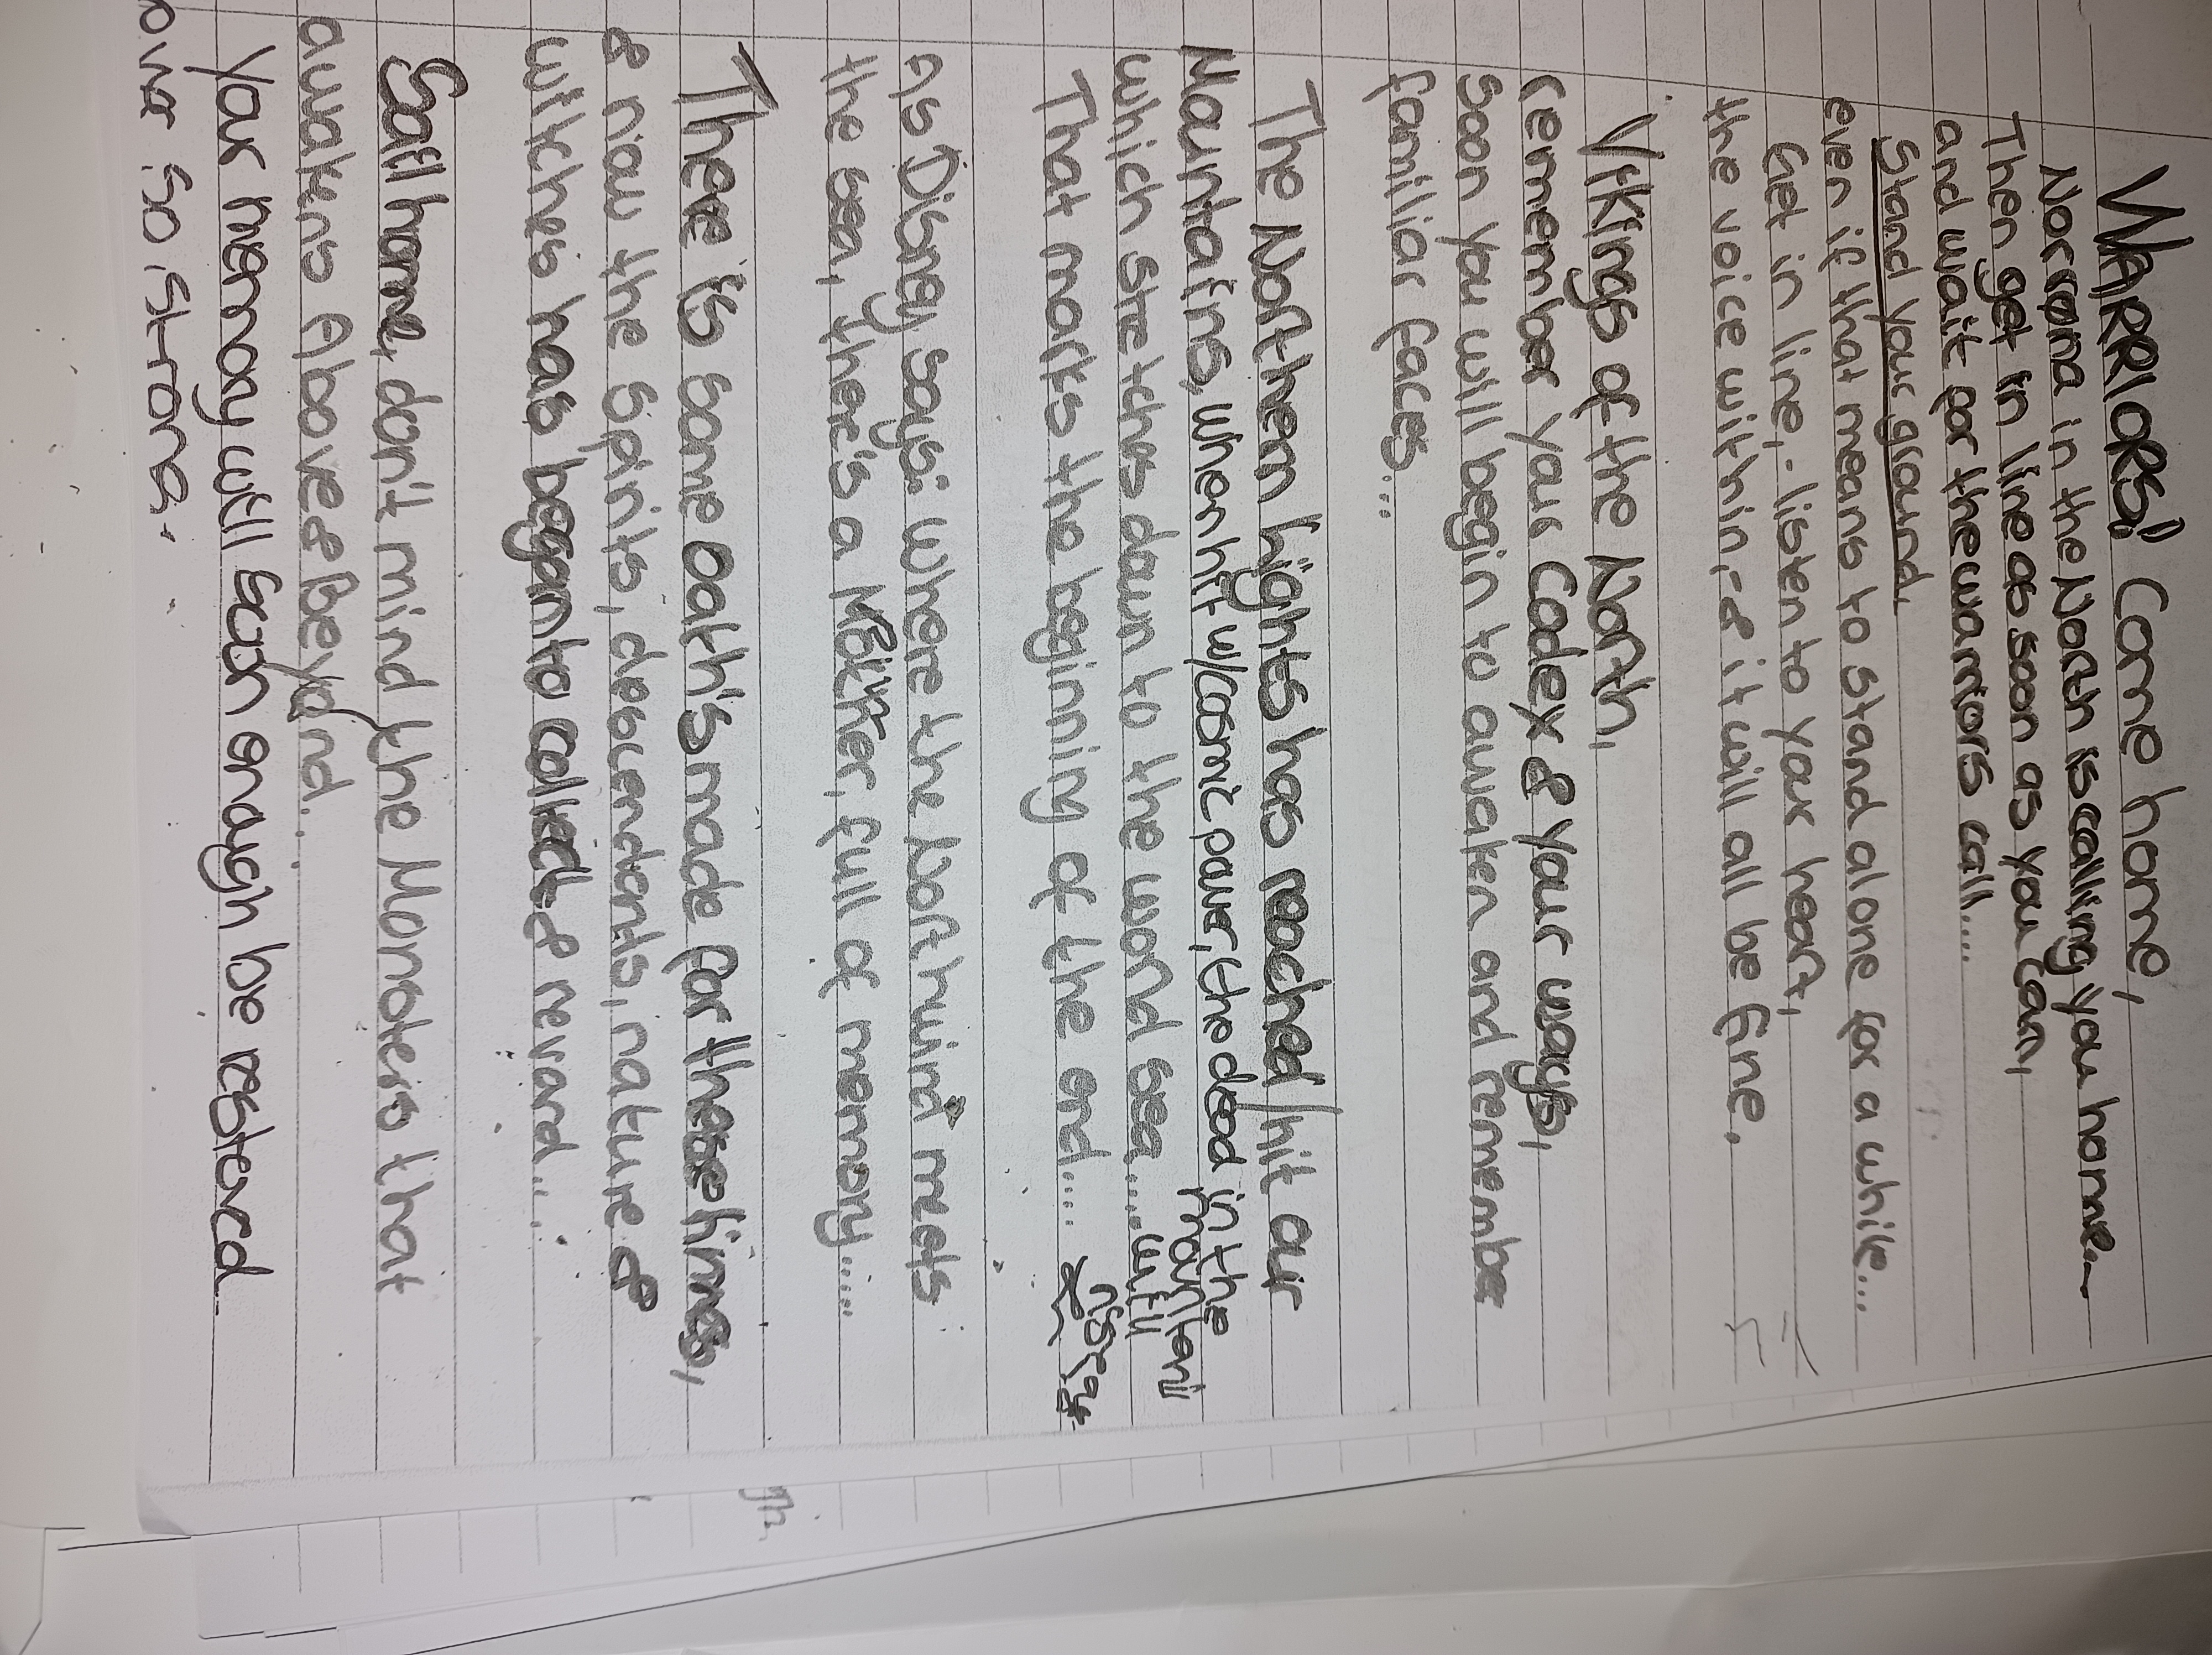 WARRIORS! Come home,
Norrøna in the North is calling you home....
Then get in line as soon as you can,
and wait for the warriors call.....
Stand your ground,
even if that means to stand alone for a while...
Get in line, - listen to your heart,
the voice within, & it will all be fine.
Vikings of the North,
remember your Codex & your ways,
soon you will begin to awaken and remember
familiar faces...
The Northern lights has reached/hit our
Mountains, when hit w/cosmic power, the dead in the mountain
which stretches down to the world sea.... will
That marks the beginning of the end....
As Disney says: where the Northwind meets
the sea, there's a Mother, full of memory.....
There is some oath's made for these times,
& now the spirits, descendants, nature &
witches has began to collect & reward...
Sail home, don't mind the Monsters that
awakens Above & Beyond...
Your memory will soon enough be restored..
over so strong.
gh.